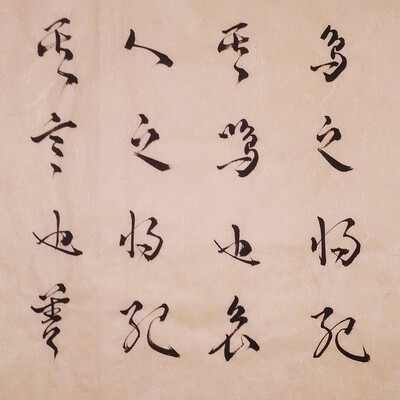 鳥之将死
其鳴也哀
人之将死
其言也善